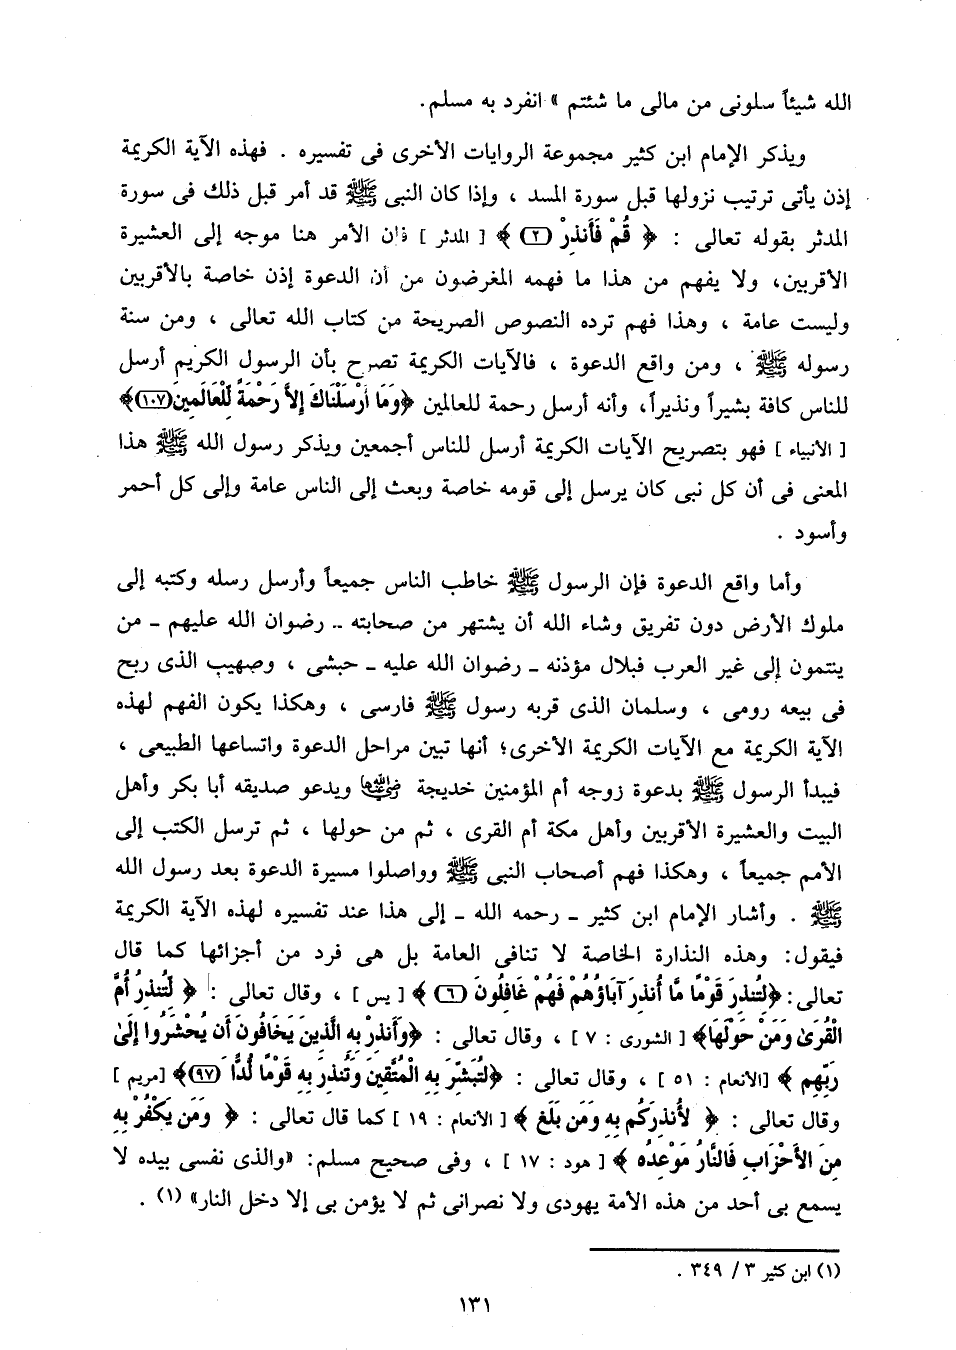 الله شيئاً سلونى من مالى ما شئتم » انفرد به مسلم.
ويذكر الإمام ابن كثير مجموعة الروايات الأخرى فى تفسيره . فهذه الآية الكريمة
إذن يأتى ترتيب نزولها قبل سورة المسد ، وإذا كان النبى ﷺ قد أمر قبل ذلك فى سورة
المدثر بقوله تعالى : ﴿ قُمْ فَأَنذِرْ (٢) ﴾ [ المدثر ] فإن الأمر هنا موجه إلى العشيرة
الأقربين، ولا يفهم من هذا ما فهمه المغرضون من أن الدعوة إذن خاصة بالأقربين
وليست عامة ، وهذا فهم ترده النصوص الصريحة من كتاب الله تعالى ، ومن سنة
رسوله ﷺ ، ومن واقع الدعوة ، فالآيات الكريمة تصرح بأن الرسول الكريم أرسل
للناس كافة بشيراً ونذيراً، وأنه أرسل رحمة للعالمين ﴿وَمَا أَرْسَلْنَاكَ إِلاَّ رَحْمَةً لِّلْعَالَمِينَ(١٠٧)﴾
[ الأنبياء ] فهو بتصريح الآيات الكريمة أرسل للناس أجمعين ويذكر رسول الله ﷺ هذا
المعنى فى أن كل نبى كان يرسل إلى قومه خاصة وبعث إلى الناس عامة وإلى كل أحمر
وأسود .
وأما واقع الدعوة فإن الرسول ﷺ خاطب الناس جميعاً وأرسل رسله وكتبه إلى
ملوك الأرض دون تفريق وشاء الله أن يشتهر من صحابته .. رضوان الله عليهم ـ من
ينتمون إلى غير العرب فبلال مؤذنه ـ رضوان الله عليه ـ حبشى ، وصهيب الذى ربح
فى بيعه رومى ، وسلمان الذى قربه رسول ﷺ فارسى ، وهكذا يكون الفهم لهذه
الآية الكريمة مع الآيات الكريمة الأخرى؛ أنها تبين مراحل الدعوة واتساعها الطبيعى ،
فيبدأ الرسول ﷺ بدعوة زوجه أم المؤمنين خديجة رضي الله عنها ويدعو صديقه أبا بكر وأهل
البيت والعشيرة الأقربين وأهل مكة أم القرى ، ثم من حولها ، ثم ترسل الكتب إلى
الأمم جميعاً ، وهكذا فهم أصحاب النبى ﷺ وواصلوا مسيرة الدعوة بعد رسول الله
ﷺ . وأشار الإمام ابن كثير ـ رحمه الله ـ إلى هذا عند تفسيره لهذه الآية الكريمة
فيقول: وهذه النذارة الخاصة لا تنافى العامة بل هى فرد من أجزائها كما قال
تعالى: ﴿لِتُنذِرَ قَوْمًا مَّا أُنذِرَ آبَاؤُهُمْ فَهُمْ غَافِلُونَ (٦) ﴾ [ يس ] ، وقال تعالى : ﴿ لِّتُنذِرَ أُمَّ
الْقُرَىٰ وَمَنْ حَوْلَهَا﴾ [ الشورى : ٧ ] ، وقال تعالى : ﴿وَأَنذِرْ بِهِ الَّذِينَ يَخَافُونَ أَن يُحْشَرُوا إِلَىٰ
رَبِّهِم ﴾ [الأنعام : ٥١ ] ، وقال تعالى : ﴿لِتُبَشِّرَ بِهِ الْمُتَّقِينَ وَتُنذِرَ بِهِ قَوْمًا لُّدًّا (٩٧)﴾ [مريم ]
وقال تعالى : ﴿ لأُنذِرَكُم بِهِ وَمَن بَلَغَ ﴾ [ الأنعام : ١٩ ] كما قال تعالى : ﴿ وَمَن يَكْفُرْ بِهِ
مِنَ الأَحْزَابِ فَالنَّارُ مَوْعِدُه ﴾ [ هود : ١٧ ] ، وفى صحيح مسلم: «والذى نفسى بيده لا
يسمع بى أحد من هذه الأمة يهودى ولا نصرانى ثم لا يؤمن بى إلا دخل النار» (١) .
(١) ابن كثير ٣ / ٣٤٩ .
١٣١